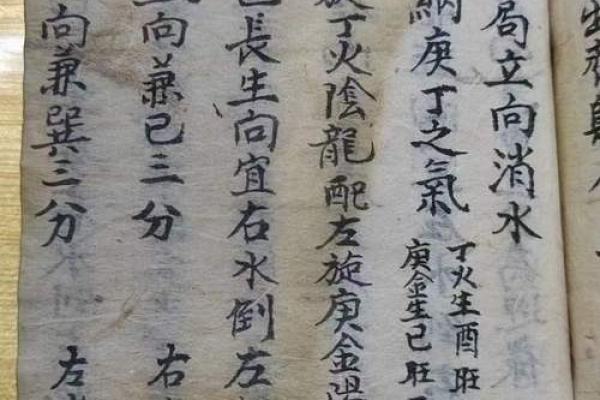 局立向消水
納庚丁之氣
丁火生酉旺
庚金生巳旺
丁火陰龍配左旋庚金陽
長生向宜右水倒左
向兼巳三分 右
向兼巽三分 左